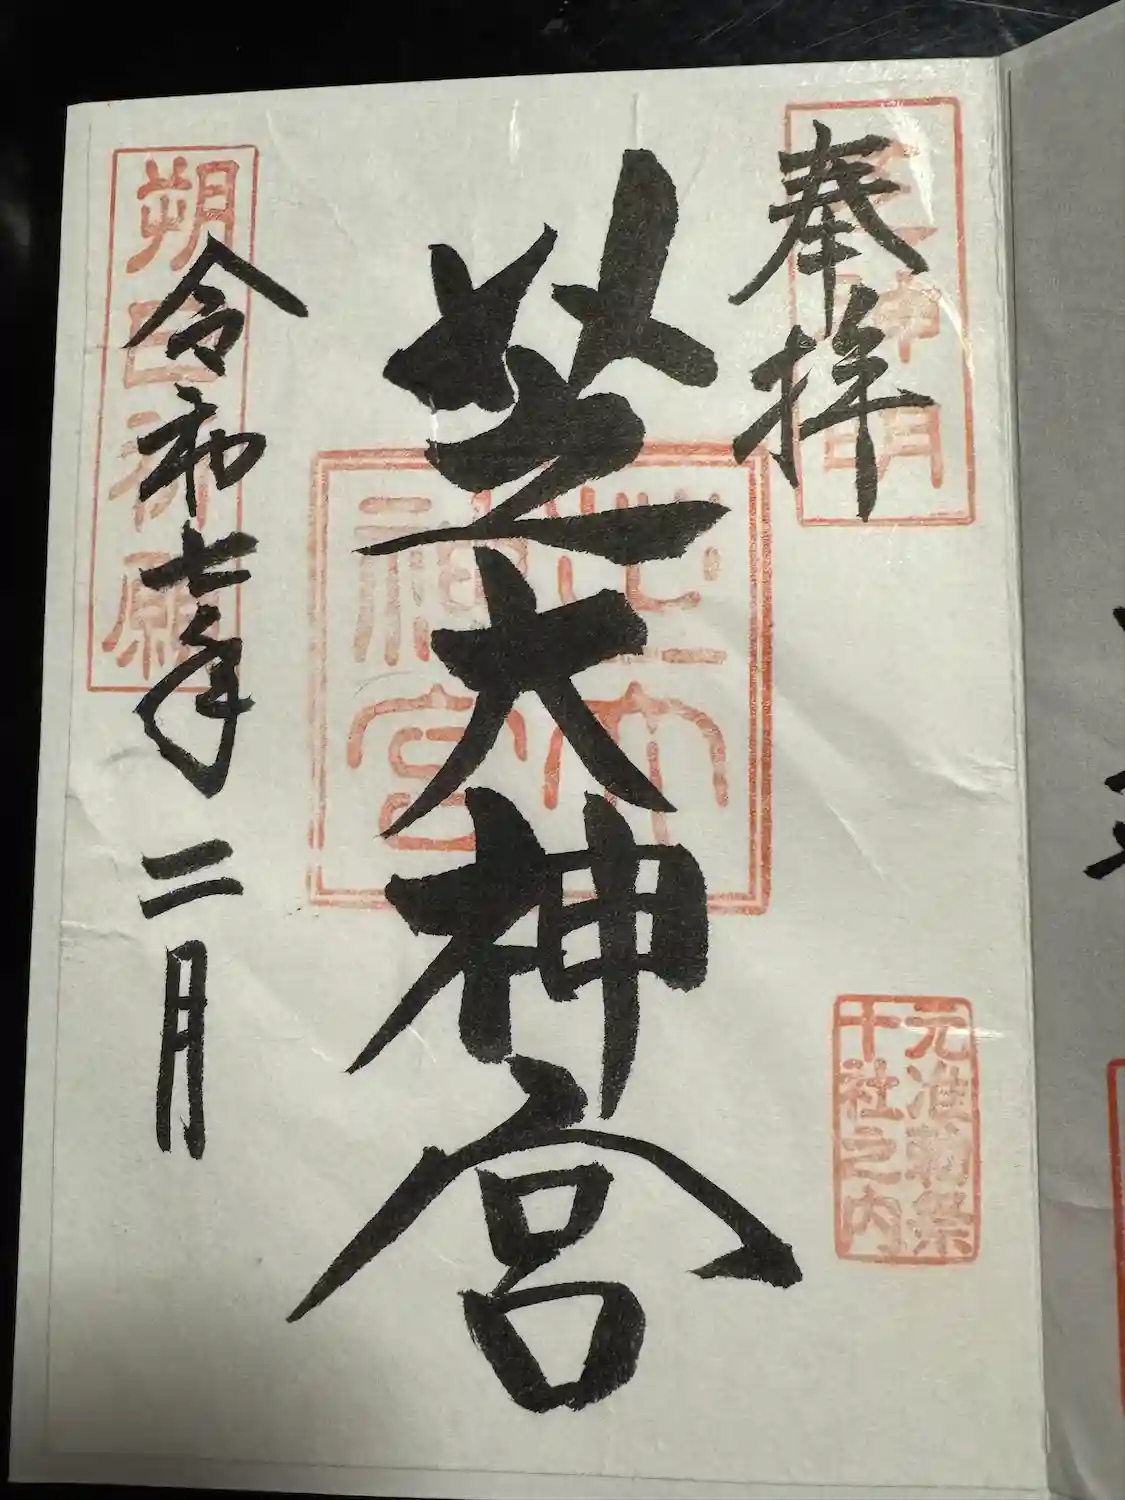 奉拝
神明
元准勅祭
十社之内
芝大神宮
芝大
神宮
令和七年二月
朔日祈願